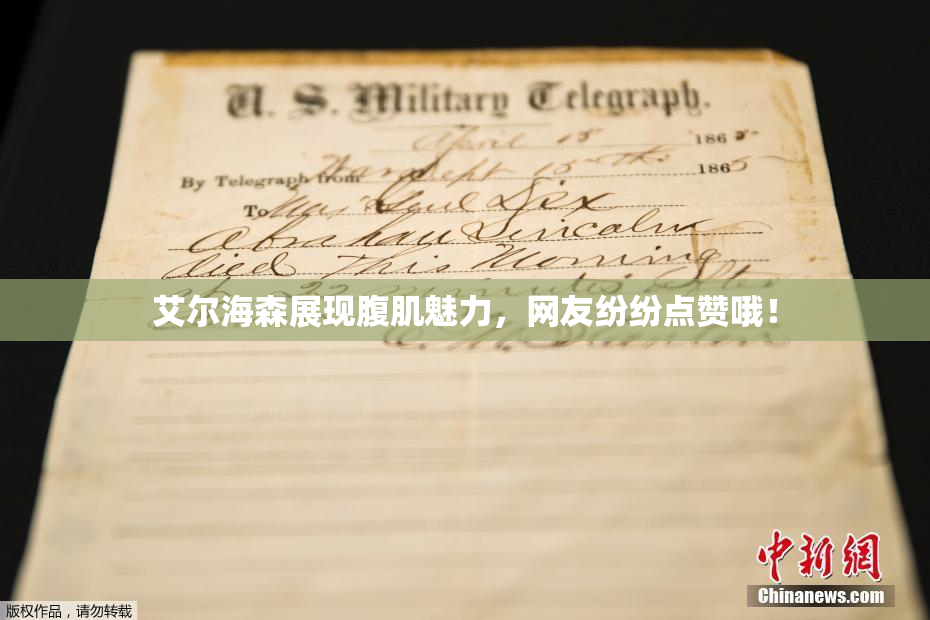 U. S. Military Telegraph.
April 15 1865
By Telegraph from War Dept 15th 1865
To Maj Genl Dix
Abraham Lincoln
died This Morning
at 22 minutes after
艾尔海森展现腹肌魅力，网友纷纷点赞哦！
E. M. Stanton
中新网
Chinanews.com
版权作品，请勿转载